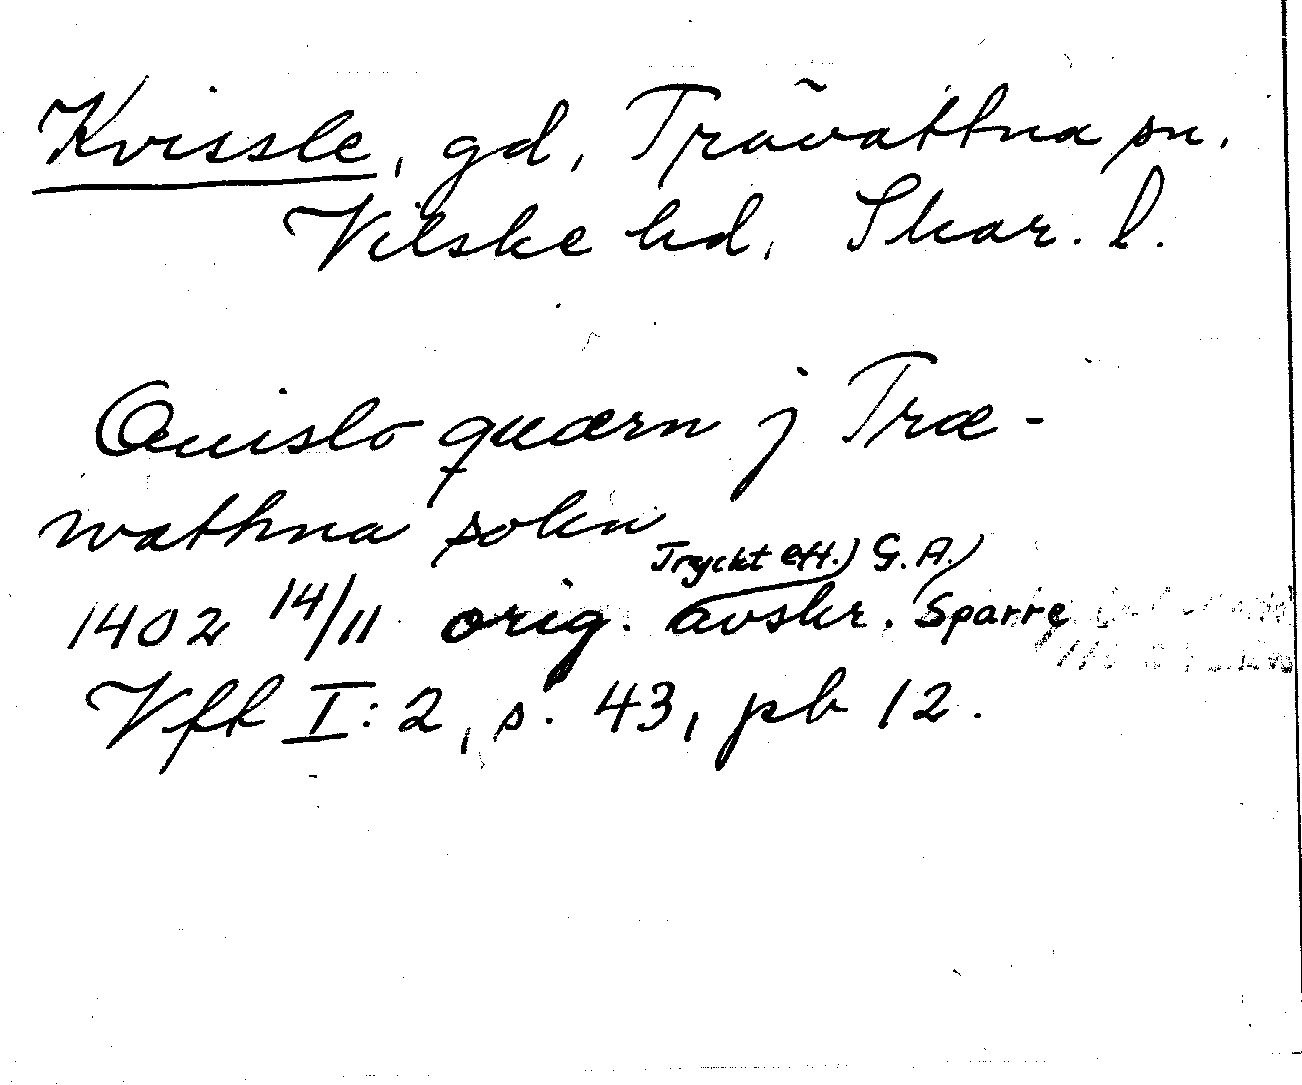 Kvissle, gd, Trävattna sn.
Vilske hd, Skar. l.
Quislo quærn j Træ-
wathna sokn
Tryckt eft.) G. A.
1402 14/11 orig. avskr. Sparre
Vfk I:2, s. 43, pb 12.